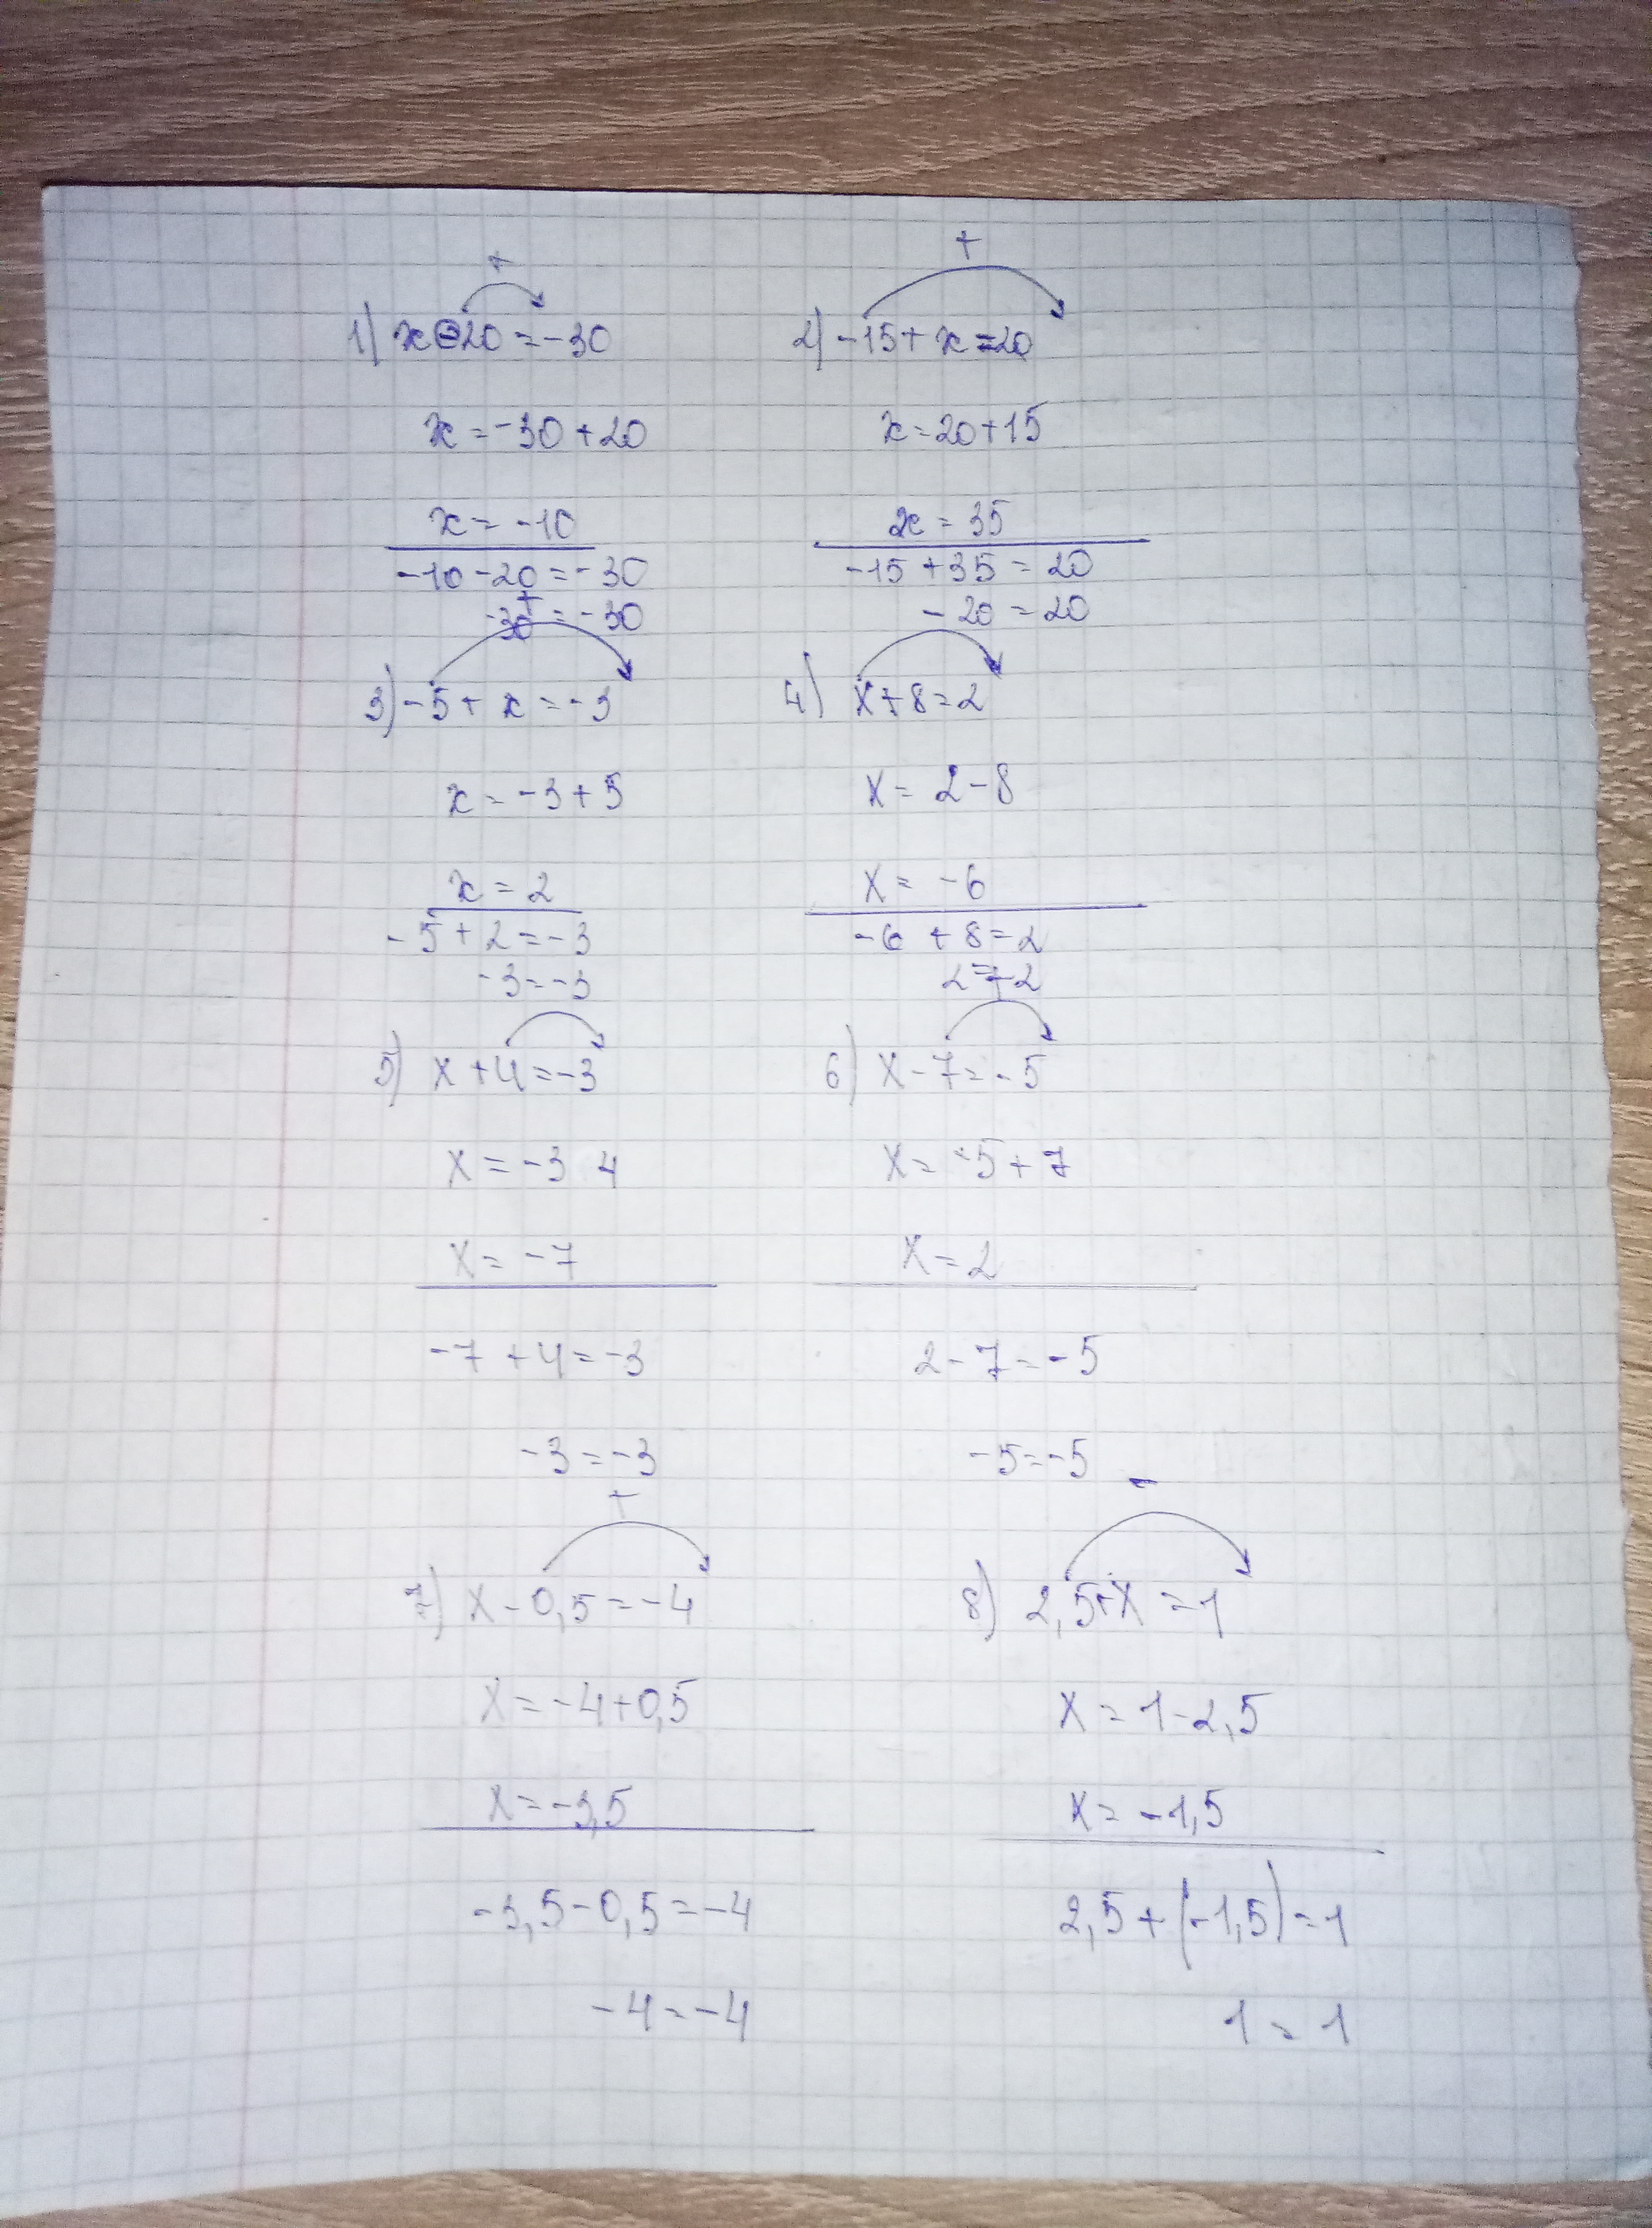 +
1) x-20=-30
x=-30+20
x=-10
-10-20=-30
-30=-30
+
2) -15+x=20
x=20+15
x=35
-15+35=20
-20=20
+
3) -5+x=-3
x=-3+5
x=2
-5+2=-3
-3=-3
4) x+8=2
x=2-8
x=-6
-6+8=2
2=2
5) x+4=-3
x=-3 4
x=-7
-7+4=-3
-3=-3
+
6) x-7=-5
x=-5+7
x=2
2-7=-5
-5=-5
+
7) x-0,5=-4
x=-4+0,5
x=-3,5
-3,5-0,5=-4
-4=-4
-
8) 2,5+x=1
x=1-2,5
x=-1,5
2,5+(-1,5)=1
1=1